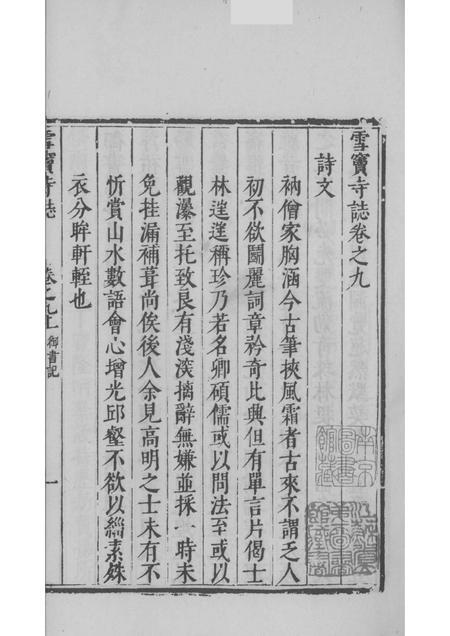 雪竇寺誌卷之九
詩文
衲僧家胸涵今古筆挾風霜者古來不謂乏人
初不欲鬬麗詞章矜奇比典但有單言片偈士
林遑遑稱珍乃若名卿碩儒或以問法至或以
觀瀑至托致良有淺深摛辭無嫌並採一時未
免挂漏補葺尚俟後人余見高明之士未有不
忻賞山水數語會心增光邱壑不欲以緇素姝
衣分眸軒輊也
雪竇寺誌
卷之九上
御書記
一